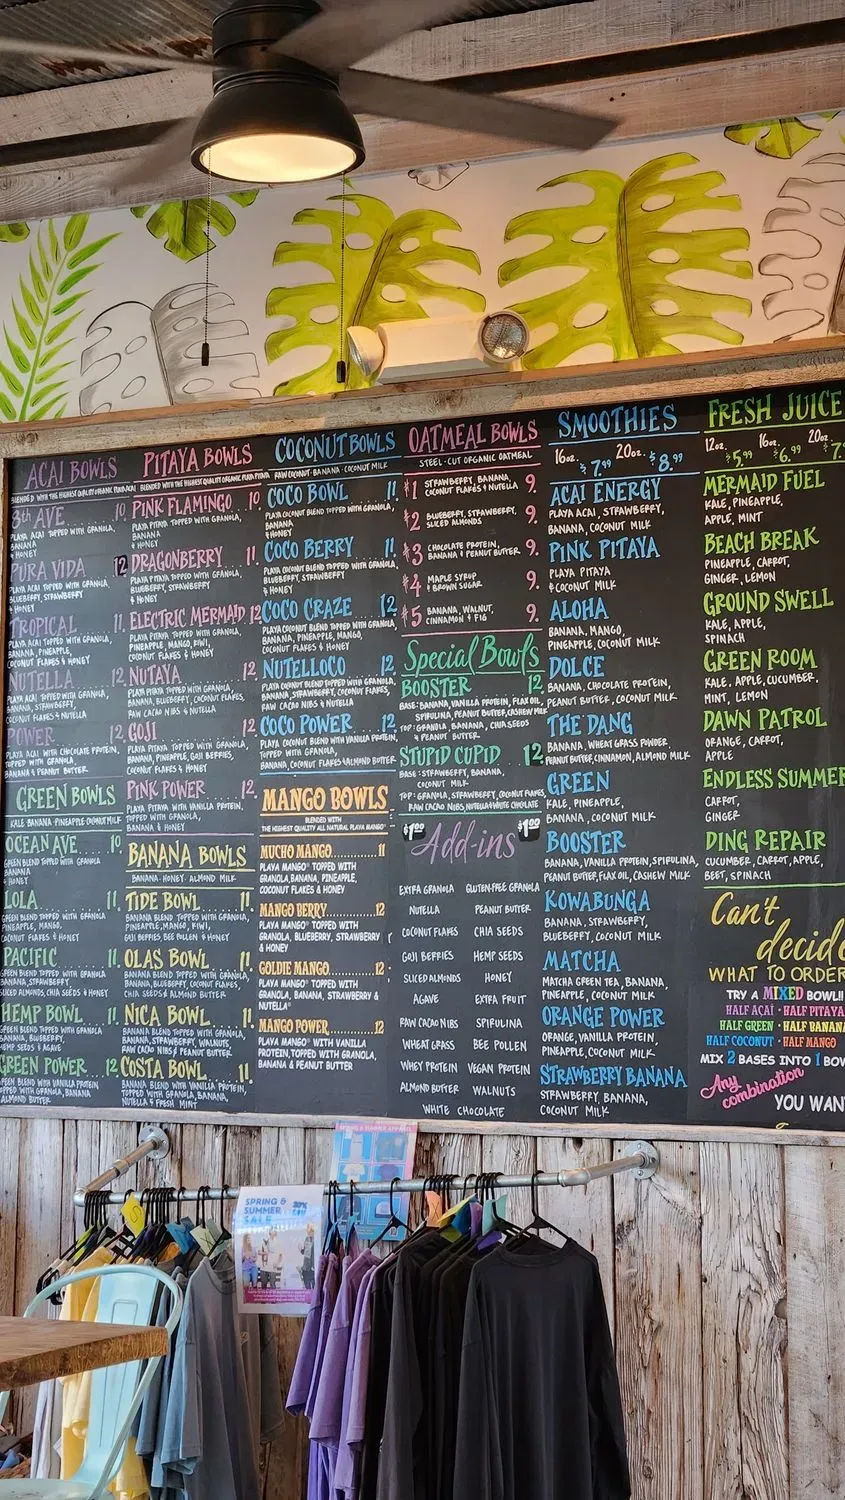 ACAI BOWLS
BLENDED WITH THE HIGHEST QUALITY ORGANIC PLAYA ACAI
8th AVE 10
PLAYA ACAI TOPPED WITH GRANOLA,
BANANA
& HONEY
PURA VIDA 12
PLAYA ACAI TOPPED WITH GRANOLA,
BLUEBERRY, STRAWBERRY
& HONEY
TROPICAL 11.
PLAYA ACAI TOPPED WITH GRANOLA,
BANANA, PINEAPPLE,
COCONUT FLAKES & HONEY
NUTELLA 12.
PLAYA ACAI TOPPED WITH GRANOLA,
BANANA, STRAWBERRY,
COCONUT FLAKES & NUTELLA
POWER 12.
PLAYA ACAI WITH CHOCOLATE PROTEIN,
TOPPED WITH GRANOLA,
BANANA & PEANUT BUTTER
GREEN BOWLS
KALE·BANANA·PINEAPPLE·COCONUT MILK
OCEAN AVE 10.
GREEN BLEND TOPPED WITH GRANOLA
BANANA
& HONEY
LOLA 11.
GREEN BLEND TOPPED WITH GRANOLA,
PINEAPPLE, MANGO,
COCONUT FLAKES & HONEY
PACIFIC 11.
GREEN BLEND TOPPED WITH GRANOLA,
BANANA, STRAWBERRY,
SLICED ALMONDS, CHIA SEEDS & HONEY
HEMP BOWL 11.
GREEN BLEND TOPPED WITH GRANOLA,
BANANA, BLUEBERRY,
HEMP SEEDS & AGAVE
GREEN POWER 12.
GREEN BLEND WITH VANILLA PROTEIN,
TOPPED WITH GRANOLA, BANANA
ALMOND BUTTER
PITAYA BOWLS
BLENDED WITH THE HIGHEST QUALITY ORGANIC PLAYA PITAYA
PINK FLAMINGO 10
PLAYA PITAYA TOPPED WITH GRANOLA,
BANANA
& HONEY
DRAGONBERRY 11.
PLAYA PITAYA TOPPED WITH GRANOLA,
BLUEBERRY, STRAWBERRY
& HONEY
ELECTRIC MERMAID 12
PLAYA PITAYA TOPPED WITH GRANOLA,
BANANA, PINEAPPLE, MANGO, KIWI,
COCONUT FLAKES & HONEY
NUTAYA 12.
PLAYA PITAYA TOPPED WITH GRANOLA,
BANANA, BLUEBERRY, COCONUT FLAKES,
RAW CACAO NIBS & NUTELLA
GOJI 12.
PLAYA PITAYA TOPPED WITH GRANOLA,
BANANA, PINEAPPLE, GOJI BERRIES,
COCONUT FLAKES & HONEY
PINK POWER 12.
PLAYA PITAYA WITH VANILLA PROTEIN,
TOPPED WITH GRANOLA,
BANANA & HONEY
BANANA BOWLS
BANANA·HONEY·ALMOND MILK
TIDE BOWL 11.
BANANA BLEND TOPPED WITH GRANOLA,
PINEAPPLE, MANGO, KIWI,
GOJI BERRIES, BEE POLLEN & HONEY
OLAS BOWL 11.
BANANA BLEND TOPPED WITH GRANOLA,
BANANA, BLUEBERRY, COCONUT FLAKES,
CHIA SEEDS & ALMOND BUTTER
NICA BOWL 11.
BANANA BLEND TOPPED WITH GRANOLA,
BANANA, STRAWBERRY,
RAW CACAO NIBS & PEANUT BUTTER
COSTA BOWL 11.
BANANA BLEND WITH VANILLA PROTEIN,
TOPPED WITH GRANOLA, BANANA,
NUTELLA & FRESH MINT
COCONUT BOWLS
RAW COCONUT·BANANA·COCONUT MILK
COCO BOWL 11.
PLAYA COCONUT BLEND TOPPED WITH GRANOLA,
BANANA
& HONEY
COCO BERRY 11.
PLAYA COCONUT BLEND TOPPED WITH GRANOLA,
BLUEBERRY, STRAWBERRY
& HONEY
COCO CRAZE 12.
PLAYA COCONUT BLEND TOPPED WITH GRANOLA,
BANANA, PINEAPPLE, MANGO,
COCONUT FLAKES & HONEY
NUTELLOCO 12.
PLAYA COCONUT BLEND TOPPED WITH GRANOLA,
BANANA, STRAWBERRY, COCONUT FLAKES,
RAW CACAO NIBS & NUTELLA
COCO POWER 12.
PLAYA COCONUT BLEND WITH VANILLA PROTEIN,
TOPPED WITH GRANOLA,
BANANA, COCONUT FLAKES & ALMOND BUTTER
MANGO BOWLS
BLENDED WITH
THE HIGHEST QUALITY ALL NATURAL PLAYA MANGO
MUCHO MANGO 11
PLAYA MANGO TOPPED WITH
GRANOLA, BANANA, PINEAPPLE,
COCONUT FLAKES & HONEY
MANGO BERRY 12
PLAYA MANGO TOPPED WITH
GRANOLA, BLUEBERRY, STRAWBERRY
& HONEY
GOLDIE MANGO 12
PLAYA MANGO TOPPED WITH
GRANOLA, BANANA, STRAWBERRY &
NUTELLA
MANGO POWER 12
PLAYA MANGO WITH VANILLA
PROTEIN, TOPPED WITH GRANOLA,
BANANA & PEANUT BUTTER
OATMEAL BOWLS
STEEL-CUT ORGANIC OATMEAL
#1 STRAWBERRY, BANANA, 9.
COCONUT FLAKES & NUTELLA
#2 BLUEBERRY, STRAWBERRY, 9.
SLICED ALMONDS
#3 CHOCOLATE PROTEIN, 9.
BANANA & PEANUT BUTTER
#4 MAPLE SYRUP 9.
& BROWN SUGAR
#5 BANANA, WALNUT, 9.
CINNAMON & FIG
Special Bowls
BOOSTER 12.
BASE: BANANA, VANILLA PROTEIN, FLAX OIL,
SPIRULINA, PEANUT BUTTER, CASHEW MILK
TOP: GRANOLA, BANANA, CHIA SEEDS
& PEANUT BUTTER
STUPID CUPID 12
BASE: STRAWBERRY, BANANA,
COCONUT MILK
TOP: GRANOLA, STRAWBERRY, COCONUT FLAKES,
RAW CACAO NIBS, NUTELLA & WHITE CHOCOLATE
$1.00 Add-ins $1.00
EXTRA GRANOLA GLUTEN-FREE GRANOLA
NUTELLA PEANUT BUTTER
COCONUT FLAKES CHIA SEEDS
GOJI BERRIES HEMP SEEDS
SLICED ALMONDS HONEY
AGAVE EXTRA FRUIT
RAW CACAO NIBS SPIRULINA
WHEAT GRASS BEE POLLEN
WHEY PROTEIN VEGAN PROTEIN
ALMOND BUTTER WALNUTS
WHITE CHOCOLATE
SMOOTHIES
16oz. $7.99 20oz. $8.99
ACAI ENERGY
PLAYA ACAI, STRAWBERRY,
BANANA, COCONUT MILK
PINK PITAYA
PLAYA PITAYA
& COCONUT MILK
ALOHA
BANANA, MANGO,
PINEAPPLE, COCONUT MILK
DOLCE
BANANA, CHOCOLATE PROTEIN,
PEANUT BUTTER, COCONUT MILK
THE DANG
BANANA, WHEAT GRASS POWDER,
PEANUT BUTTER, CINNAMON, ALMOND MILK
GREEN
KALE, PINEAPPLE,
BANANA, COCONUT MILK
BOOSTER
BANANA, VANILLA PROTEIN, SPIRULINA,
PEANUT BUTTER, FLAX OIL, CASHEW MILK
KOWABUNGA
BANANA, STRAWBERRY,
BLUEBERRY, COCONUT MILK
MATCHA
MATCHA GREEN TEA, BANANA,
PINEAPPLE, COCONUT MILK
ORANGE POWER
ORANGE, VANILLA PROTEIN,
PINEAPPLE, COCONUT MILK
STRAWBERRY BANANA
STRAWBERRY, BANANA,
COCONUT MILK
FRESH JUICE
12oz. $5.99 16oz. $6.99 20oz. $7.
MERMAID FUEL
KALE, PINEAPPLE,
APPLE, MINT
BEACH BREAK
PINEAPPLE, CARROT,
GINGER, LEMON
GROUND SWELL
KALE, APPLE,
SPINACH
GREEN ROOM
KALE, APPLE, CUCUMBER,
MINT, LEMON
DAWN PATROL
ORANGE, CARROT,
APPLE
ENDLESS SUMMER
CARROT,
GINGER
DING REPAIR
CUCUMBER, CARROT, APPLE,
BEET, SPINACH
Can't
decide
WHAT TO ORDER
TRY A MIXED BOWL!!
HALF ACAI · HALF PITAYA
HALF GREEN · HALF BANANA
HALF COCONUT · HALF MANGO
MIX 2 BASES INTO 1 BOW
Any
combination
YOU WAN
SPRING & SUMMER APPAREL
SPRING &
SUMMER
SALE